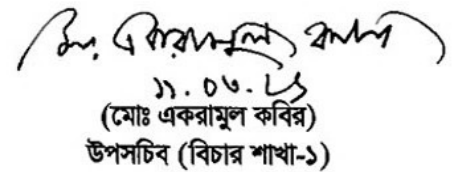 মোঃ একরামুল কবির
১১.০৩.২১
(মোঃ একরামুল কবির)
উপসচিব (বিচার শাখা-১)